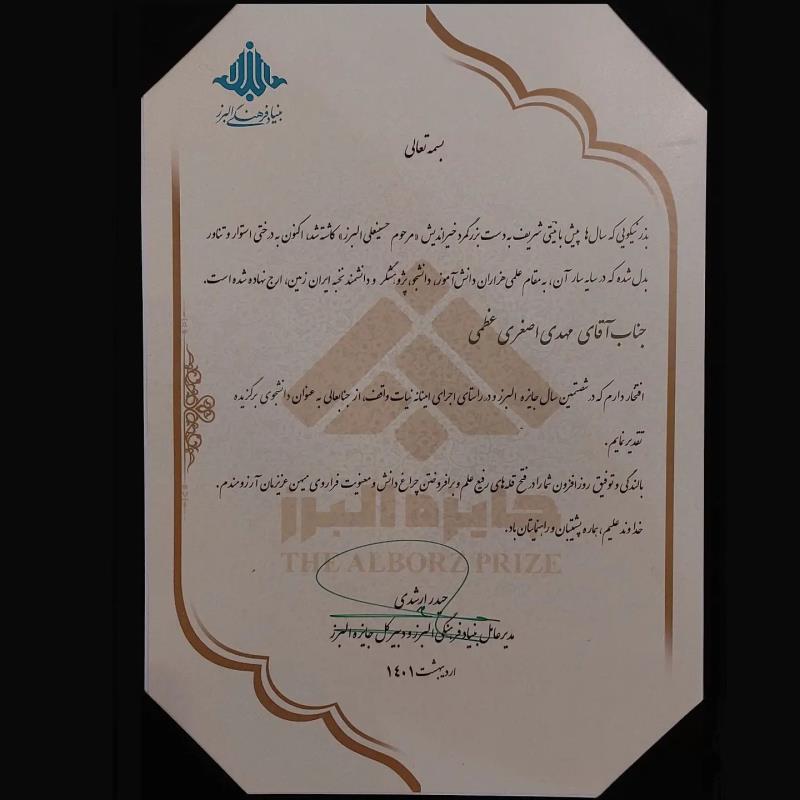 بنیاد فرهنگی البرز
بسمه تعالی
بذر نیکویی که سال‌ها پیش با نیتی شریف به دست بزرگمرد خیراندیش «مرحوم حسینعلی البرز» کاشته شد، اکنون به درختی استوار و تناور
بدل شده که در سایه سار آن، به مقام علمی هزاران دانش‌آموز، دانشجو، پژوهشگر و دانشمند نخبه ایران زمین، ارج نهاده شده است.
جناب آقای مهدی اصغری عظمی
افتخار دارم که در شصتمین سال جایزه البرز و در راستای اجرای امینانه نیات واقف، از جنابعالی به عنوان دانشجوی برگزیده
تقدیر نمایم.
بالندگی و توفیق روزافزون شما را در فتح قله‌های رفیع علم و برافروختن چراغ دانش و معنویت فراروی میهن عزیزمان آرزومندم.
خداوند علیم، هماره پشتیبان و راهنمایتان باد.
جایزه البرز
THE ALBORZ PRIZE
حیدر ارشدی
مدیرعامل بنیاد فرهنگی البرز و دبیر کل جایزه البرز
اردیبهشت ۱۴۰۱